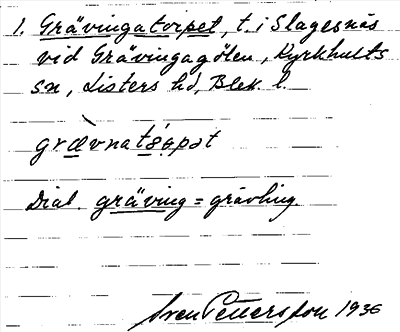 1. Grävingatorpet, t. i Slagesnäs
vid Grävingagölen, Kyrkhults
sn, Listers hd, Blek. l.
grævnatǫpət
Dial. gräving = grävling
Sven Petersson 1936